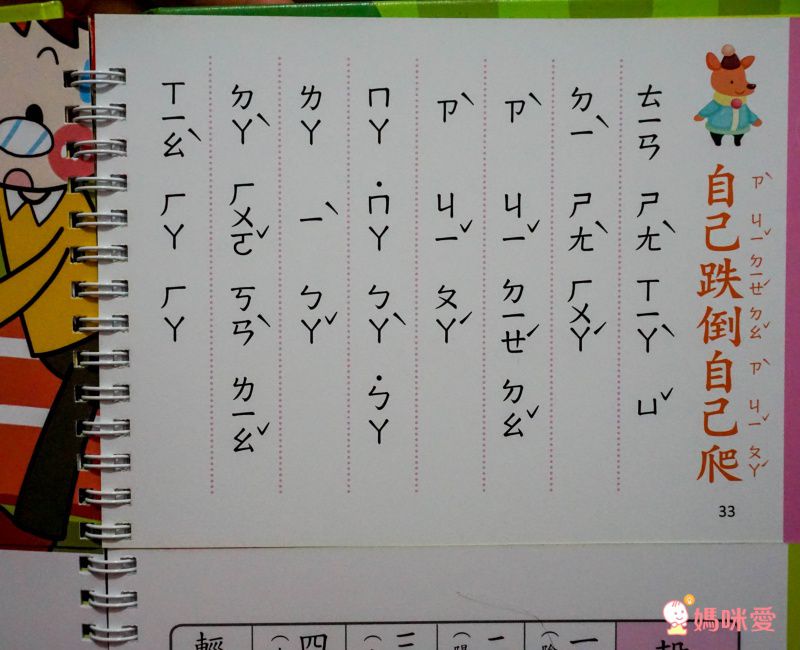 ㄗˋ ㄐㄧˇ ㄉㄧㄝˊ ㄉㄠˇ ㄗˋ ㄐㄧˇ ㄆㄚˊ
自己跌倒自己爬
ㄊㄧㄢ ㄕㄤˋ ㄒㄧㄚˋ ㄩˇ
ㄉㄧˋ ㄕㄤˋ ㄏㄨㄚˊ
ㄗˋ ㄐㄧˇ ㄉㄧㄝˊ ㄉㄠˇ
ㄗˋ ㄐㄧˇ ㄆㄚˊ
ㄇㄚ ˙ㄇㄚ ㄅㄚˋ ˙ㄅㄚ
ㄌㄚ ㄧˋ ㄅㄚˇ
ㄉㄚˋ ㄏㄨㄛˇ ㄎㄢˋ ㄌㄧㄠˇ
ㄒㄧㄠˋ ㄏㄚ ㄏㄚ
33
媽咪愛
一
三
四
輕